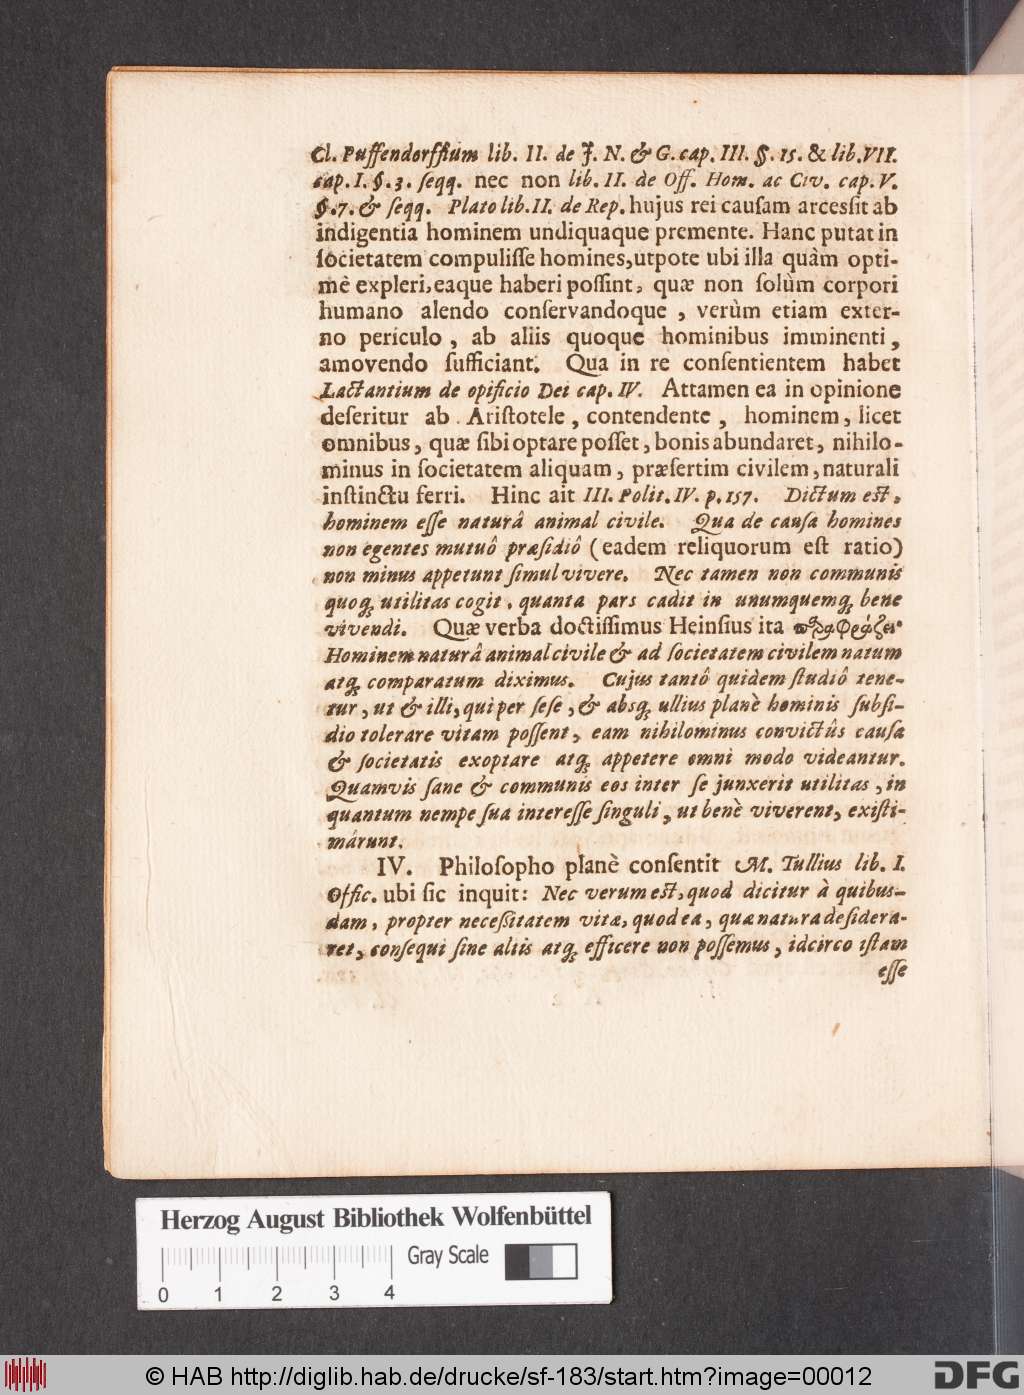 Cl. Puffendorffium lib. II. de J. N. & G. cap. III. §. 15. & lib. VII.
cap. I. §. 3. ſeqq. nec non lib. II. de Off. Hom. ac Civ. cap. V.
§. 7. & ſeqq. Plato lib. II. de Rep. hujus rei cauſam arceſſit ab
indigentia hominem undiquaque premente. Hanc putat in
ſocietatem compuliſſe homines, utpote ubi illa quàm opti-
mè expleri, eaque haberi poſſint, quæ non ſolùm corpori
humano alendo conſervandoque, verùm etiam exter-
no periculo, ab aliis quoque hominibus imminenti,
amovendo ſufficiant. Qua in re conſentientem habet
Lactantium de opificio Dei cap. IV. Attamen ea in opinione
deſeritur ab Ariſtotele, contendente, hominem, licet
omnibus, quæ ſibi optare poſſet, bonis abundaret, nihilo-
minus in ſocietatem aliquam, præſertim civilem, naturali
inſtinctu ferri. Hinc ait III. Polit. IV. p. 157. Dictum eſt,
hominem eſſe naturâ animal civile. Qua de cauſa homines
non egentes mutuô præſidiô (eadem reliquorum eſt ratio)
non minus appetunt ſimul vivere. Nec tamen non communis
quoq; utilitas cogit, quanta pars cadit in unumquemq; bene
vivendi. Quæ verba doctiſſimus Heinſius ita παραφράζει·
Hominem naturâ animal civile & ad ſocietatem civilem natum
atq; comparatum diximus. Cujus tantô quidem ſtudiô tene-
tur, ut & illi, qui per ſeſe, & absq; ullius planè hominis ſubſi-
dio tolerare vitam poſſent, eam nihilominus convictûs cauſa
& ſocietatis exoptare atq; appetere omni modo videantur.
Quamvis ſane & communis eos inter ſe junxerit utilitas, in
quantum nempe ſua intereſſe ſinguli, ut benè viverent, exiſti-
márunt.
IV. Philoſopho planè conſentit M. Tullius lib. I.
Offic. ubi ſic inquit: Nec verum eſt, quod dicitur à quibus-
dam, propter neceſſitatem vitæ, quod ea, quæ natura deſidera-
ret, conſequi ſine aliis atq; efficere non poſſemus, idcirco iſtam
eſſe
Herzog August Bibliothek Wolfenbüttel
Gray Scale
0 1 2 3 4
© HAB http://diglib.hab.de/drucke/sf-183/start.htm?image=00012
DFG